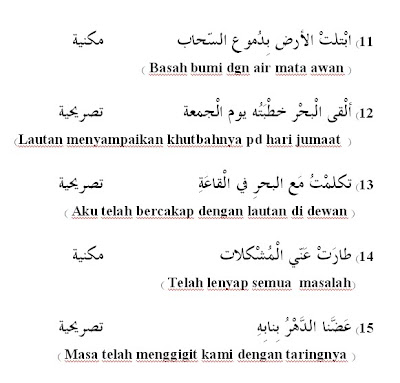 11) ابْتلتْ الأرض بِدُموع السّحاب مكنية
( Basah bumi dgn air mata awan )
12) ألْقى الْبحْر خطْبَتُه يوم الْجمعة تصريحية
(Lautan menyampaikan khutbahnya pd hari jumaat )
13) تكلمْتُ مَع البحرِ في الْقاعَةِ تصريحية
( Aku telah bercakap dengan lautan di dewan )
14) طارَتْ عَنّي الْمُشْكلات مكنية
( Telah lenyap semua masalah)
15) عَضَّنا الدَّهْرُ بِنابِهِ تصريحية
( Masa telah menggigit kami dengan taringnya )